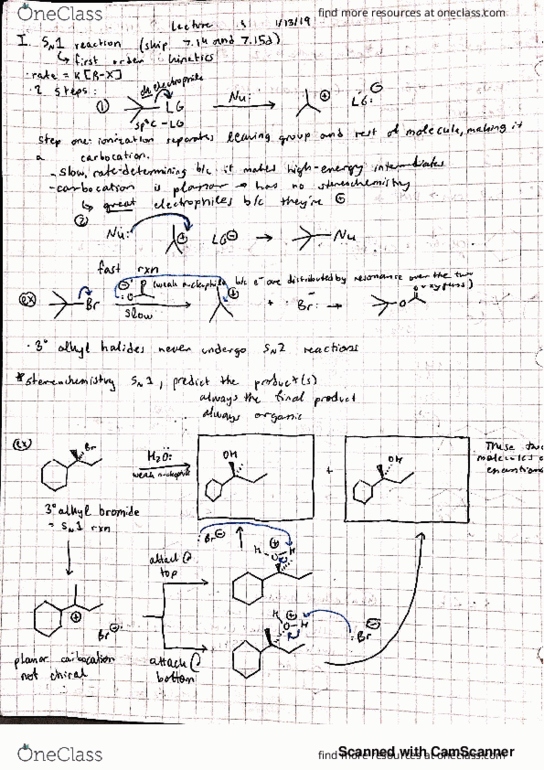 OneClass
find more resources at oneclass.com
Lecture 1/13/19
I. SN1 reaction (skip 7.14 and 7.15d)
↳ first order kinetics
rate = K[R-X]
2 steps:
electrophile
① LG Nu: → ⊕ LG: ⊖
sp³C-LG
Step one: ionization separates leaving group and rest of molecule, making it
a carbocation.
- slow, rate-determining b/c it makes high-energy intermediates
- carbocation is planar → has no stereochemistry
↳ great electrophiles b/c they're ⊕
②
Nu: ⊕ LG⊖ → Nu
fast rxn
(weak nucleophile b/c e⁻ are distributed by resonance over the two oxygens)
ex Br → slow ⊕ + Br:⁻ →
· 3° alkyl halides never undergo SN2 reactions
*stereochemistry SN1, predict the product(s)
always the final product
always organic
ex Br H2O: → OH + OH
weak nucleophile
These two
molecules
3° alkyl bromide
= SN1 rxn
Br⊖ H ⊕ H
attack @
top
⊕
Br⊖
H ⊕ H Br⊖
planar carbocation
not chiral
attack @
bottom
OneClass
find more resources at oneclass.com
Scanned with CamScanner